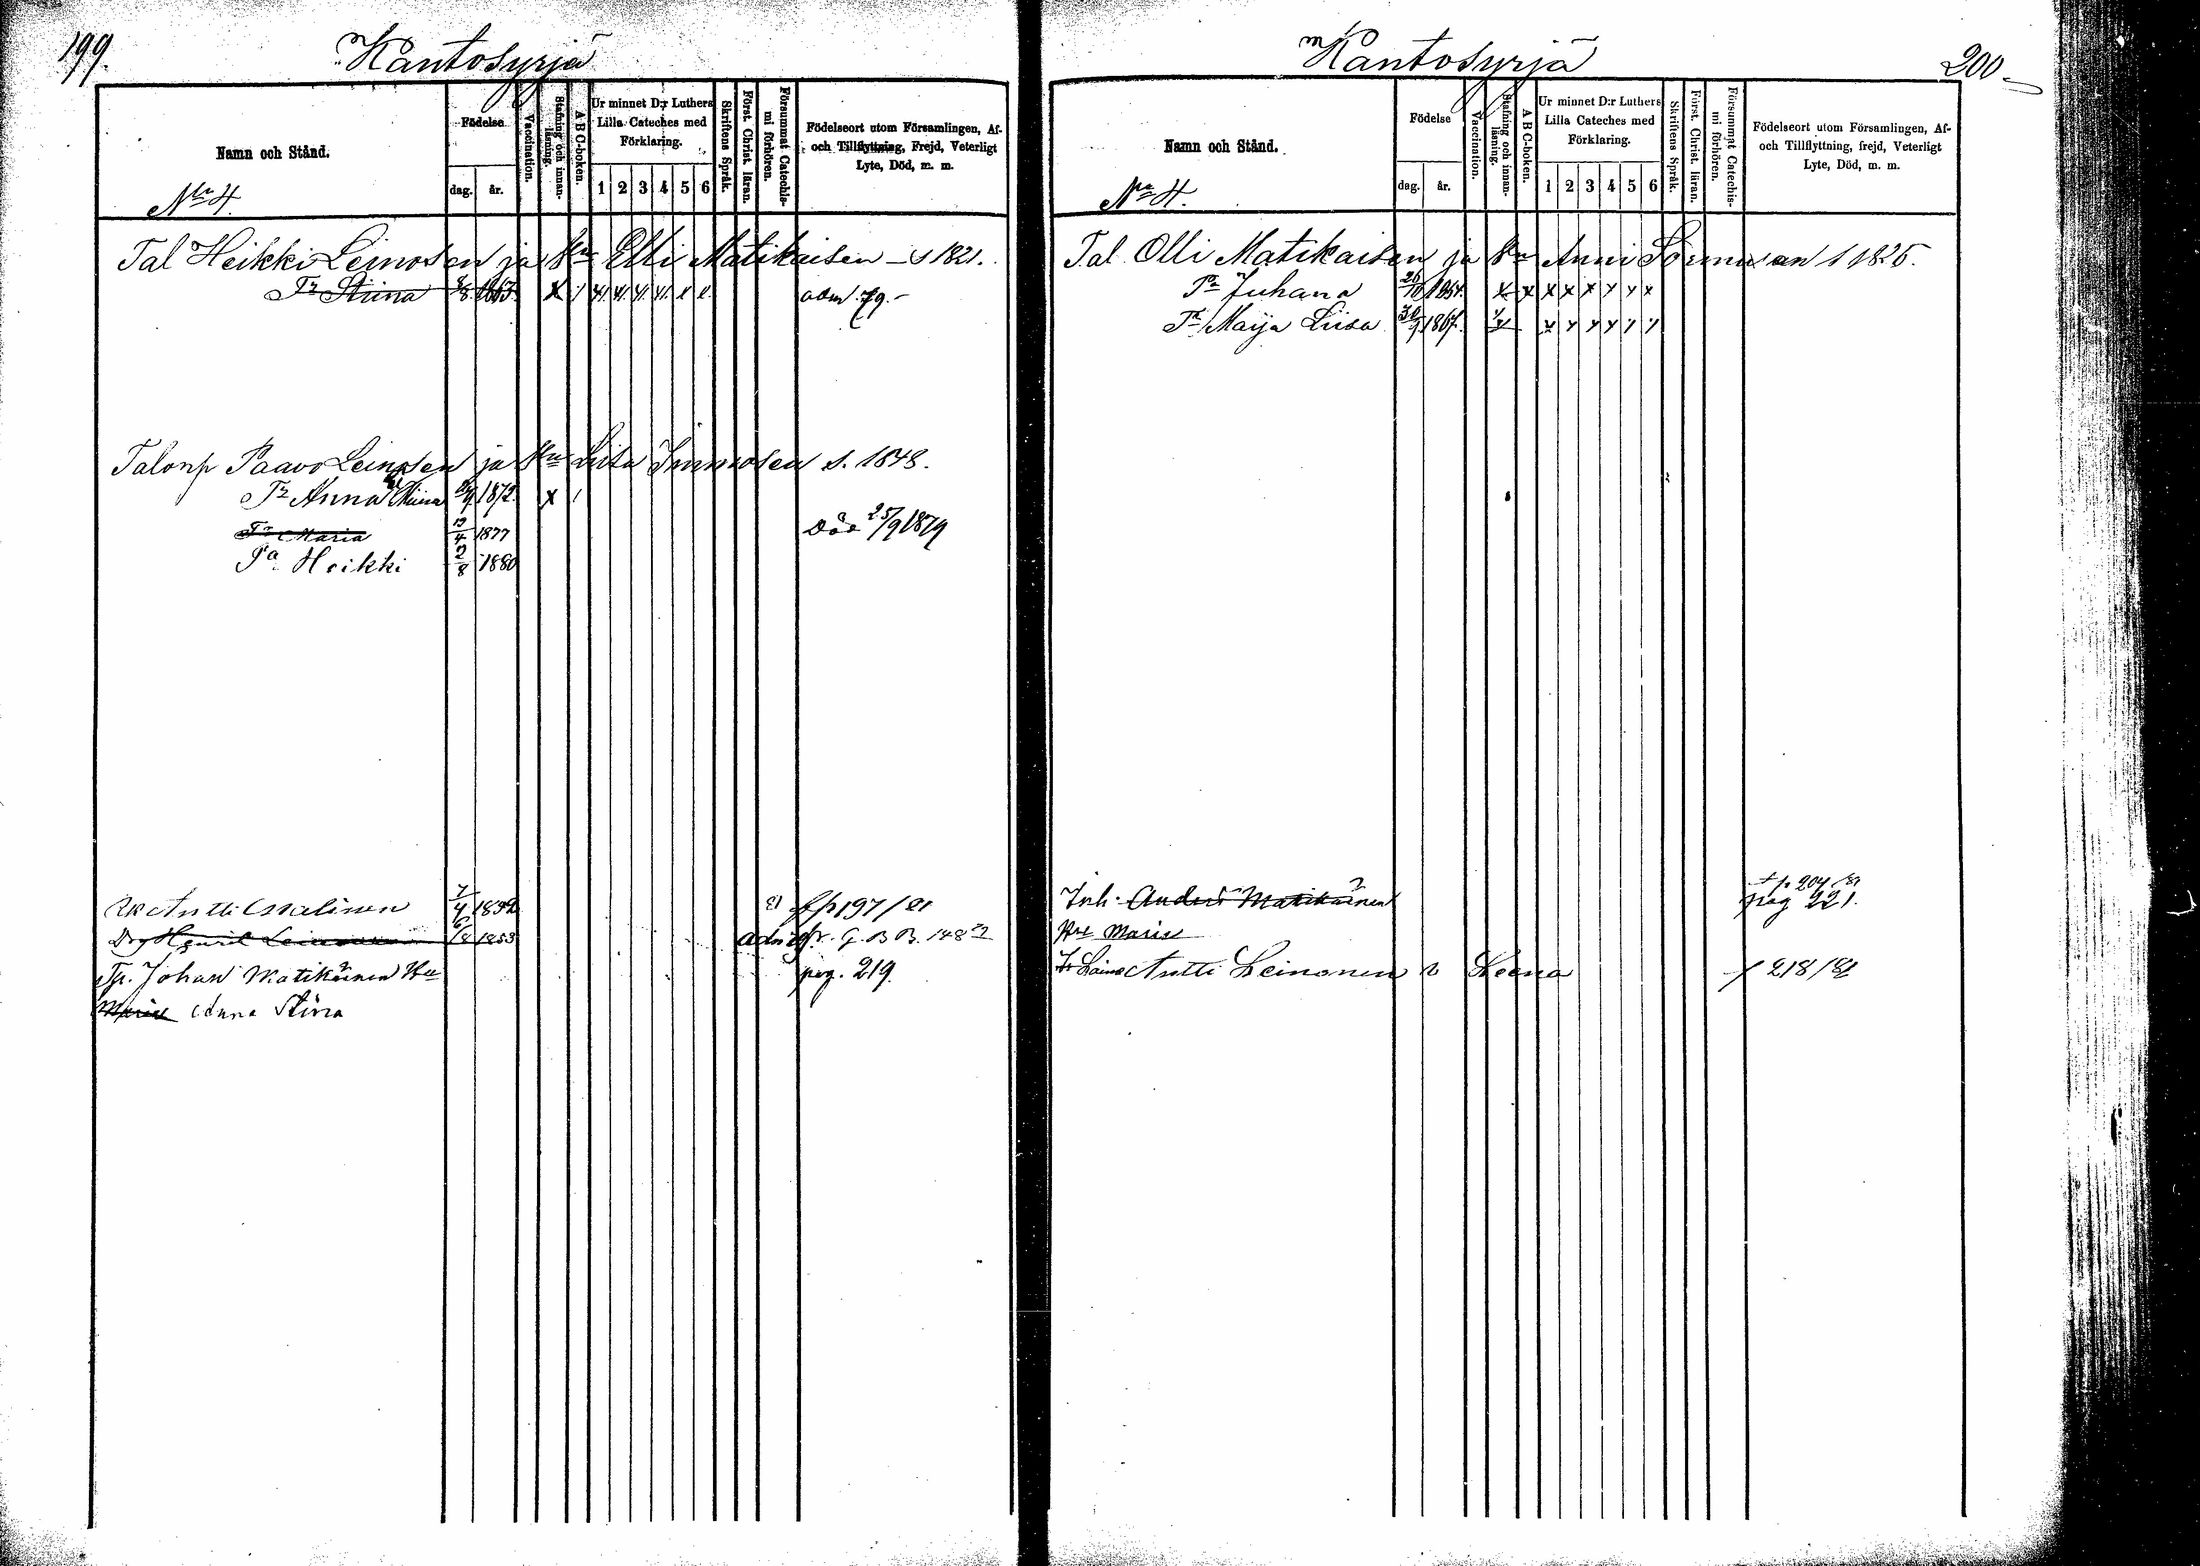 199.
Kantosyrjä
Namn och Stånd.
No 4.
Födelse
dag.
år.
Vaccination.
Stafning och innan-
läsning.
A B C-boken.
Ur minnet D:r Luthers
Lilla Cateches med
Förklaring.
1 2 3 4 5 6
Skriftens Språk.
Först. Christ. läran.
Försummat Catechis-
mi förhören.
Födelseort utom Församlingen, Af-
och Tillflyttning, Frejd, Veterligt
Lyte, Död, m. m.
Tal Heikki Leinosen ja Hu Elli Matikaisen s 1821.
Tr Stiina 1863. adm. 79.
Talonp Paavo Leinosen ja Hu Liisa Immosen s. 1848.
Tr Anna Stiina 1872. x
Tr Maria 19/4 1877 Död 25/9 1879
Pa Heikki 2/8 1880
Antti Malinen 7/4 1852 fp 197/81
Drg Henrik Leinonen 1853 G. B B. 148
Johan Matikainen Hu pag. 219.
Maria Anna Stina
Kantosyrjä
200
Namn och Stånd.
No 4.
Födelse
dag.
år.
Vaccination.
Stafning och innan-
läsning.
A B C-boken.
Ur minnet D:r Luthers
Lilla Cateches med
Förklaring.
1 2 3 4 5 6
Skriftens Språk.
Först. Christ. läran.
Försummat Catechis-
mi förhören.
Födelseort utom Församlingen, Af-
och Tillflyttning, frejd, Veterligt
Lyte, Död, m. m.
Tal. Olli Matikaisen ja Hu Anni Sormusen s 1825.
Pa Juhana 26/10 1854. x x x x x x x x
Tr Maija Liisa 30/9 1867.
Inh. Anders Matikainen pag 221.
Hu Maria
Antti Leinonen Leena 218/81